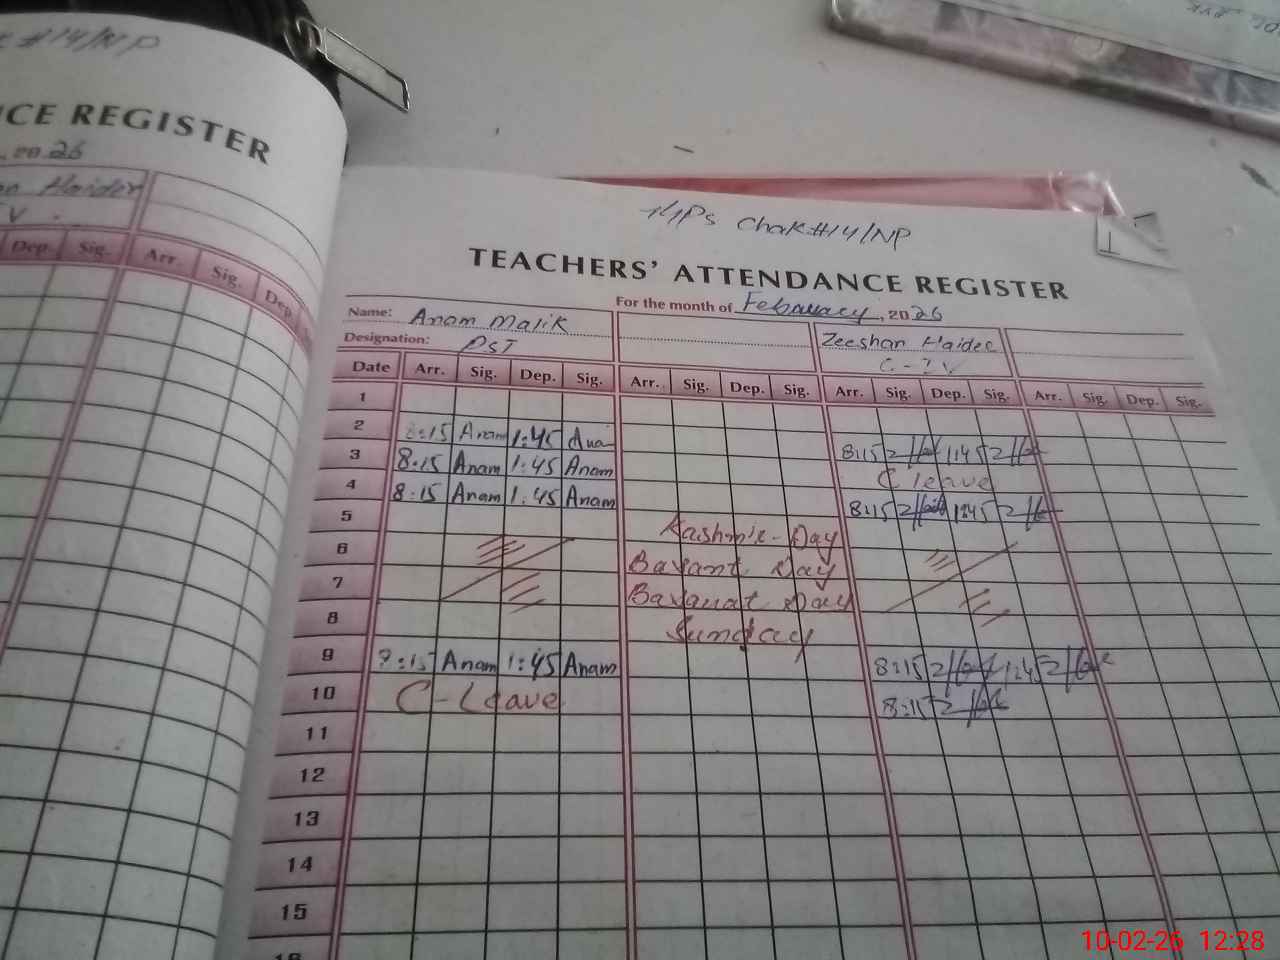 #14/NP
CE REGISTER
, 20 26
Haider
Dep. Sig. Arr. Sig. Dep.
Chak #14/NP
TEACHERS' ATTENDANCE REGISTER
For the month of Febauacy, 20 26
Name: Anam Malik Zeeshan Haider
Designation: PST
Date Arr. Sig. Dep. Sig. Arr. Sig. Dep. Sig. Arr. Sig. Dep. Sig. Arr. Sig. Dep. Sig.
1
2 8:15 Anam 1:45 Ana 8:15 1:45
3 8:15 Anam 1:45 Anam C leave
4 8:15 Anam 1:45 Anam 8:15 1:45
5 Kashmir-Day
6 Basant Day
7 Basanat Day
8 Sunday
9 8:15 Anam 1:45 Anam 8:15 1:45
10 C-Leave 8:15
11
12
13
14
15
16
10-02-26 12:28